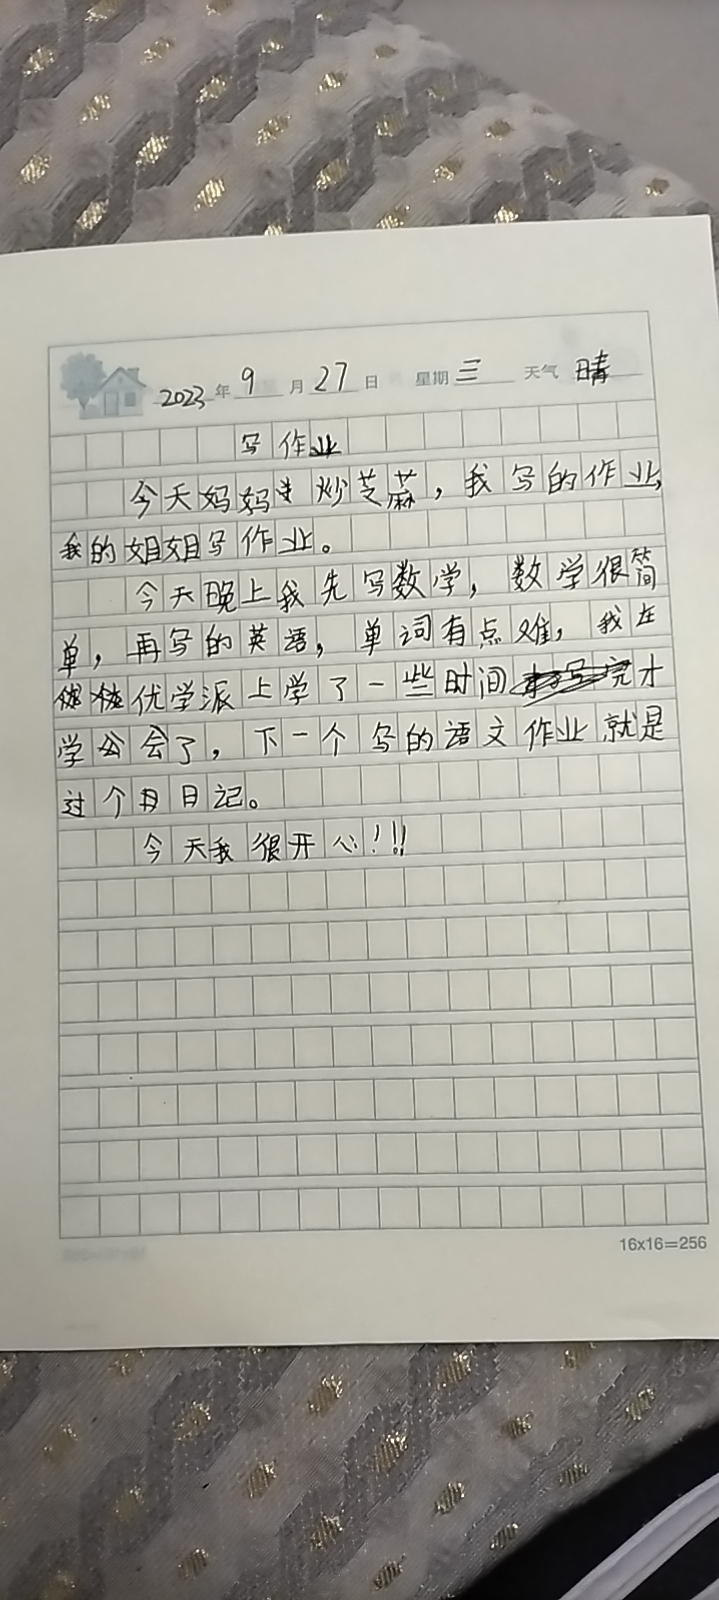 2023年9月27日 星期三 天气 晴
写作业
今天妈妈炒芝麻，我写的作业，
我的姐姐写作业。
今天晚上我先写数学，数学很简
单，再写的英语，单词有点难，我在
优学派上学了一些时间才
学会了，下一个写的语文作业就是
过个日记。
今天我很开心！!!
16x16=256